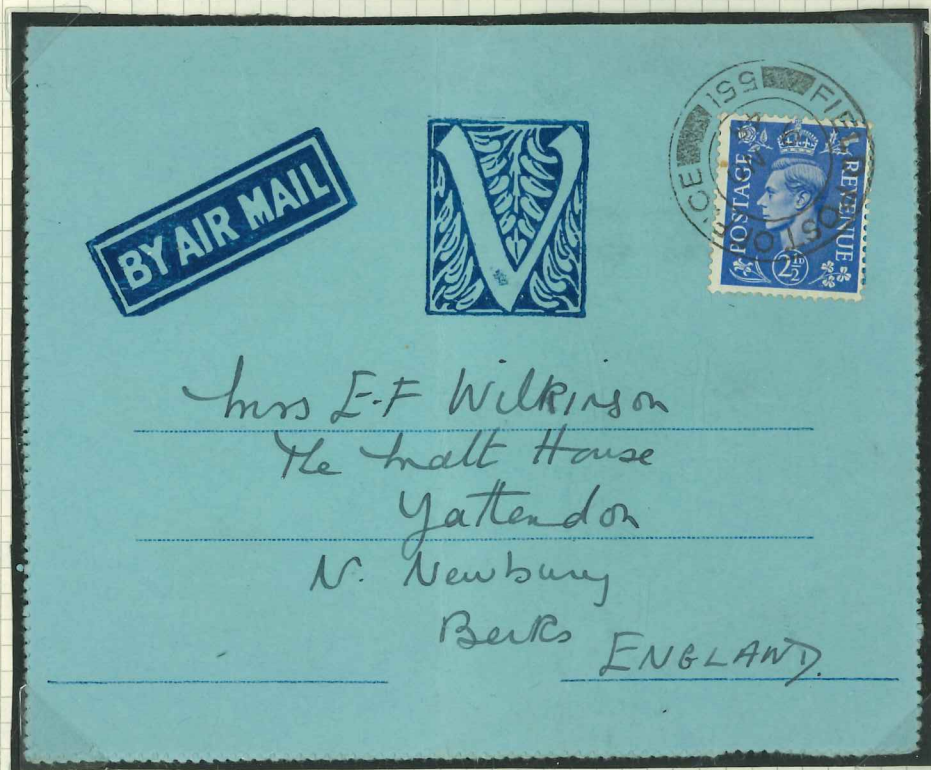 BY AIR MAIL
V
FIELD POST OFFICE
551
POSTAGE
REVENUE
2½D
Mrs E-F Wilkinson
The Malt House
Yattendon
N. Newbury
Berks
ENGLAND.